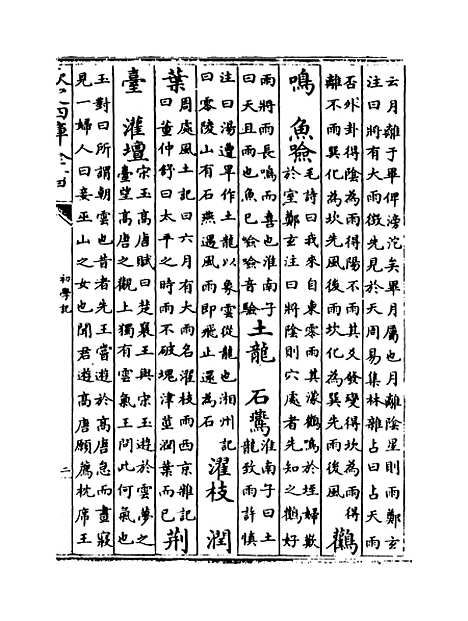 云月離于畢俾滂沱矣畢月屬也月離陰星則雨鄭玄
注曰將有大雨徵先見於天周易集林雜占曰占天雨
否外卦得陰為雨得陽不雨其爻發變得坎為雨得
離不雨巽化為坎先風後雨坎化為巽先雨後風
鸛
鳴 魚噞
毛詩曰我來自東零雨其濛鸛鳴於垤婦歎
於室鄭玄注曰將陰則穴處者先知之鸛好
雨將雨長鳴而喜也淮南子
曰天且雨也魚已噞喁音驗
土龍 石鷰
淮南子曰土
龍致雨許慎
注曰湯遭旱作土龍以象雲從龍也湘州記
曰零陵山有石燕遇風雨即飛止還為石
濯枝 潤
葉
周處風土記曰六月有大雨名濯枝雨西京雜記
曰董仲舒曰太平之時雨不破塊津莖潤葉而已
荆
臺 灌壇
宋玉高唐賦曰楚襄王與宋玉遊於雲夢之
臺望高唐之觀上獨有雲氣王問此何氣也
玉對曰所謂朝雲也昔者先王嘗遊於高唐怠而晝寢
見一婦人曰妾巫山之女也聞君遊高唐願薦枕席王
初學記
二